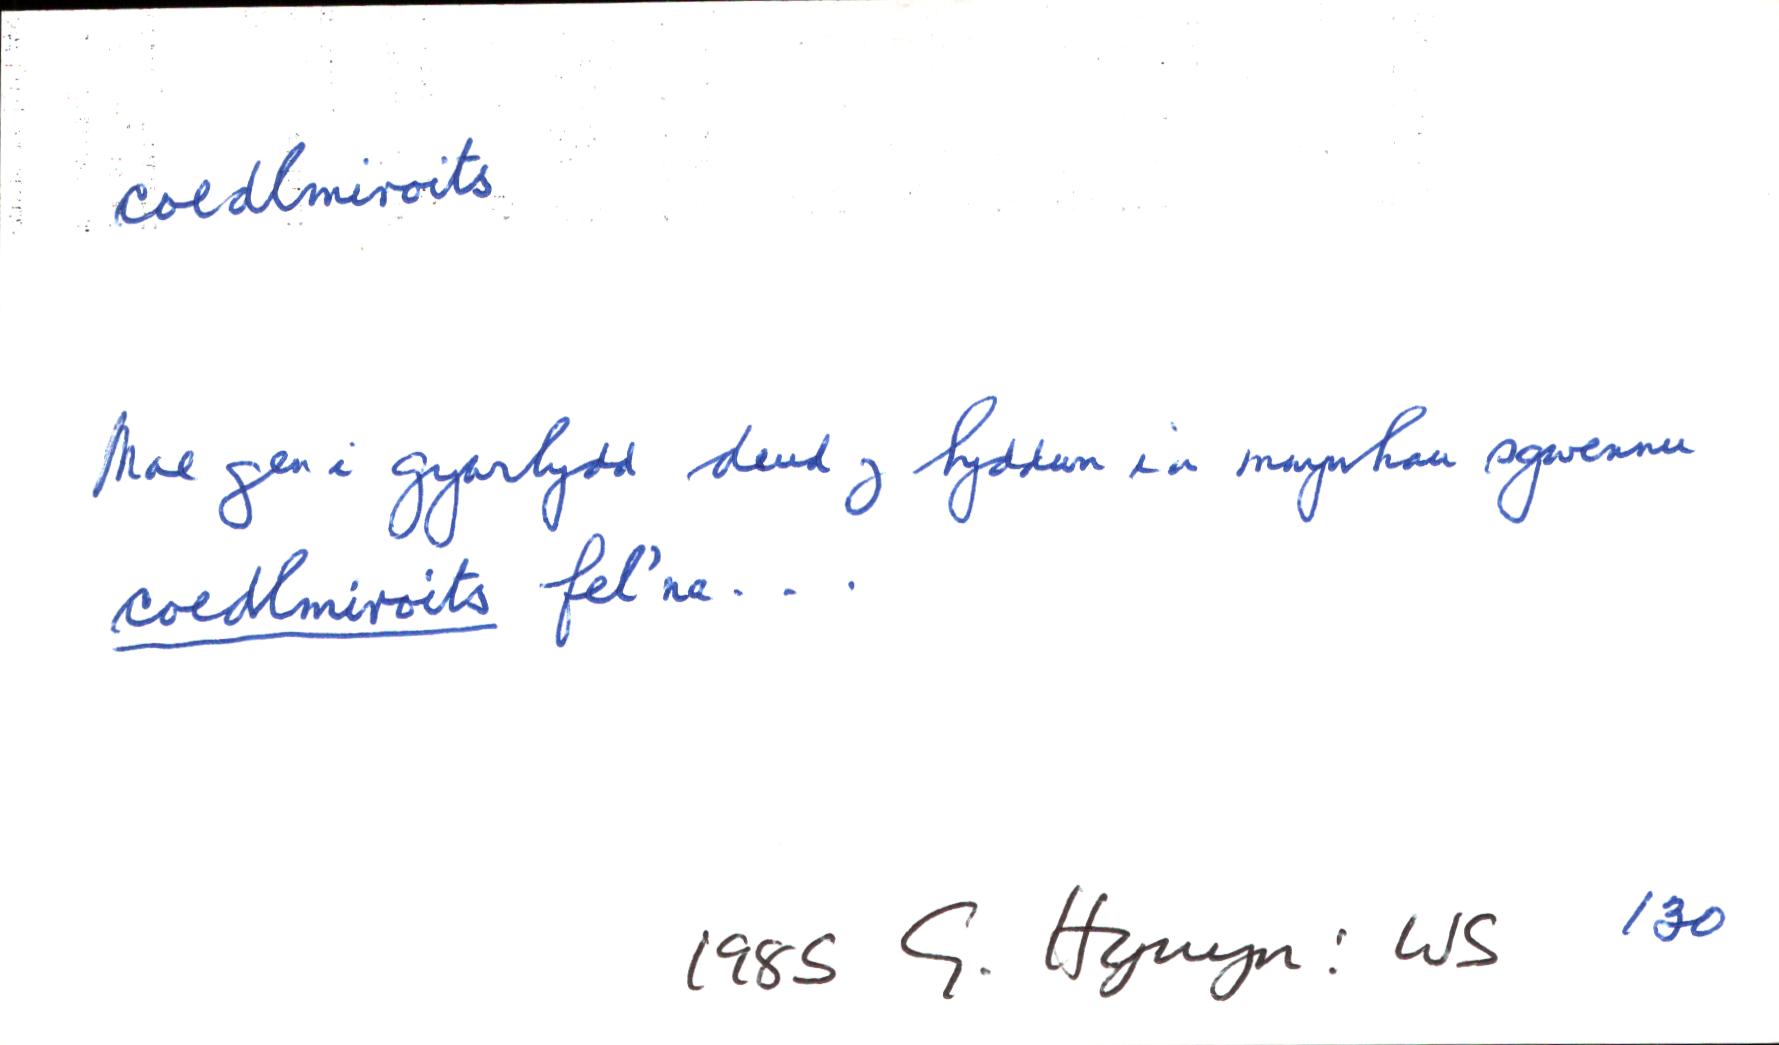 coedlmiroits
Mae gen i gywilydd deud y byddwn i'n mwynhau sgwennu
coedlmiroits fel'na . . .
1985 G. Hywyn: WS 130